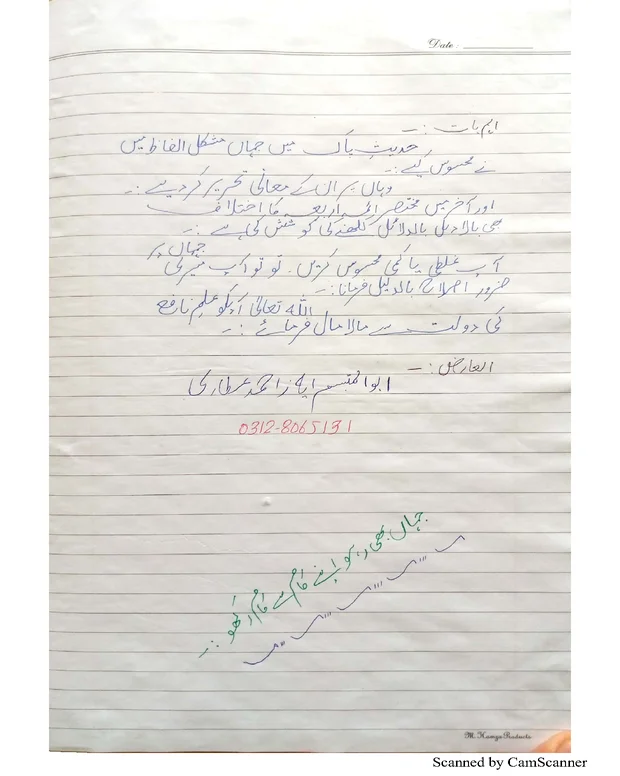 Date :
اہم بات :۔
حدیثِ پاک میں جہاں مشکل الفاظ میں
نے محسوس کیے :۔
وہاں پر ان کے معانی تحریر کر دیے :۔
اور آخر میں مختصر ائمہ اربعہ کا اختلاف
بھی بالدلیل بالدلائل لکھنے کی کوشش کی ہے :۔
جہاں پر
آپ غلطی یا کمی محسوس کریں۔ تو تو آپ میری
ضرور اصلاح بالدلیل فرمانا :۔
اللہ تعالیٰ آپکو علمِ نافع
کی دولت سے مالا مال فرمائے :۔
العارض :۔
ابو المبتسم ایاز احمد عطاری
0312-8065131
جہاں بھی رہو اپنے کام سے کام رکھو :۔
M. Hamza Products
Scanned by CamScanner